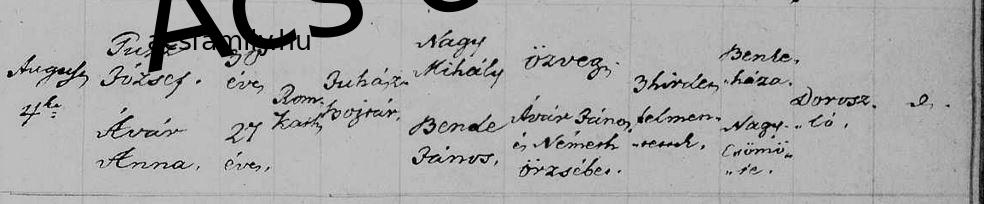 Acs
acsfamily.hu
Augusz
4ke
József.
Avár
Anna.
38
éves
27
éves.
Rom.
Kath.
Juhász
bojtár.
Nagy
Mihály
Bende
János.
özvegy
Avár János
és Németh
örzsébet.
3hirdet.
felmen-
Benke,
háza.
Nagy-
Csömö-
te.
Dorosz-
ló.